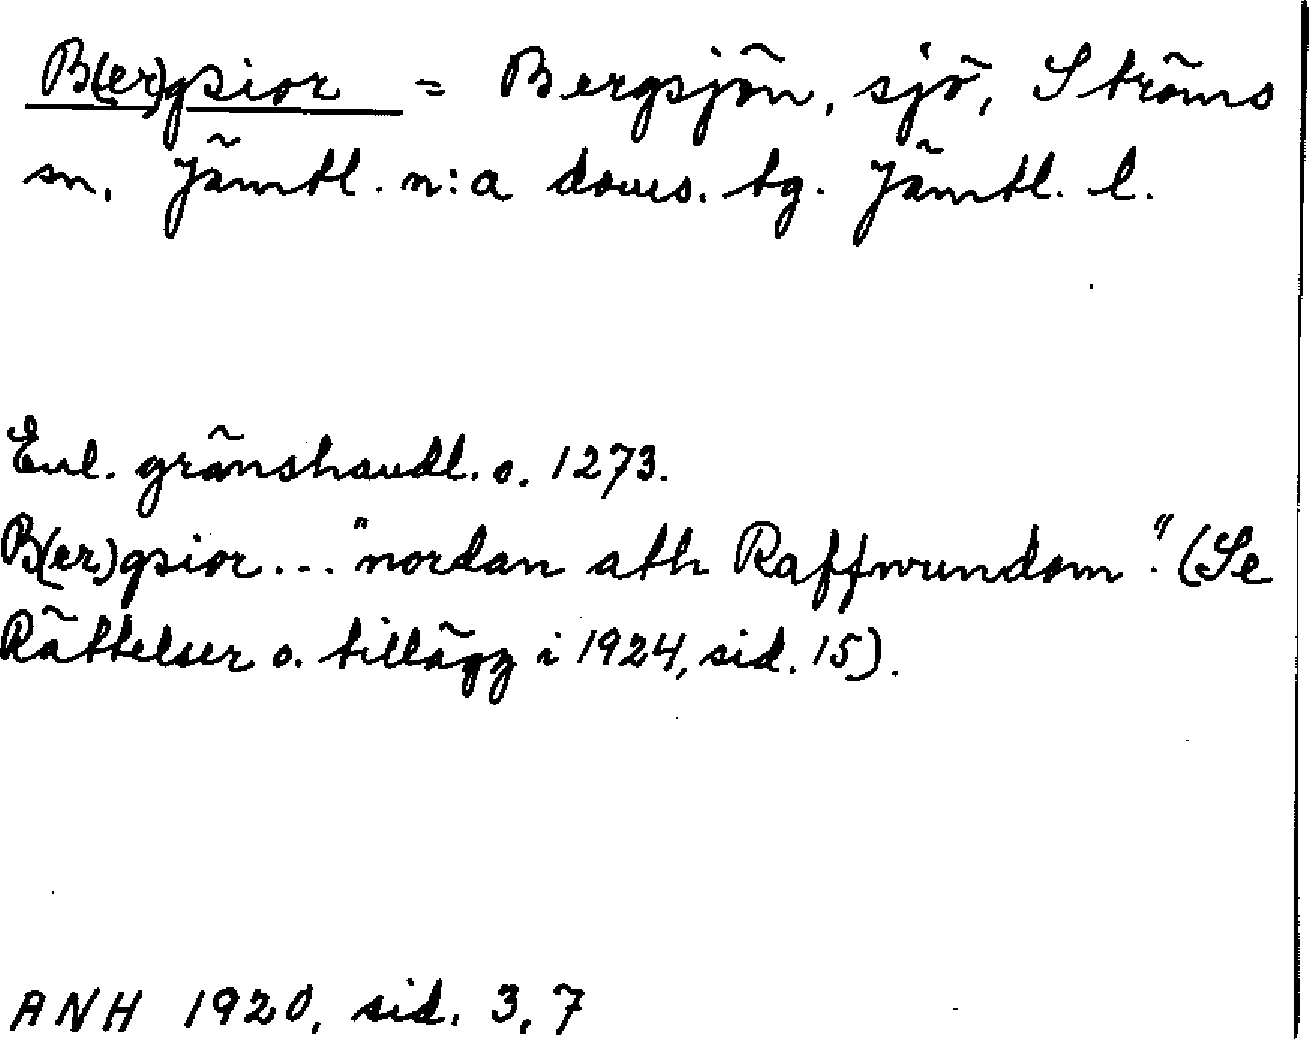 B(er)gsior = Bergsjön, sjö, Ströms
sn, Jämtl. n:a doms. tg. Jämtl. l.
Enl. gränshandl. o. 1273.
B(er)gsior... "nordan ath Raffwundom". (Se
Rättelser o. tillägg i 1924, sid. 15).
ANH 1920, sid. 3, 7